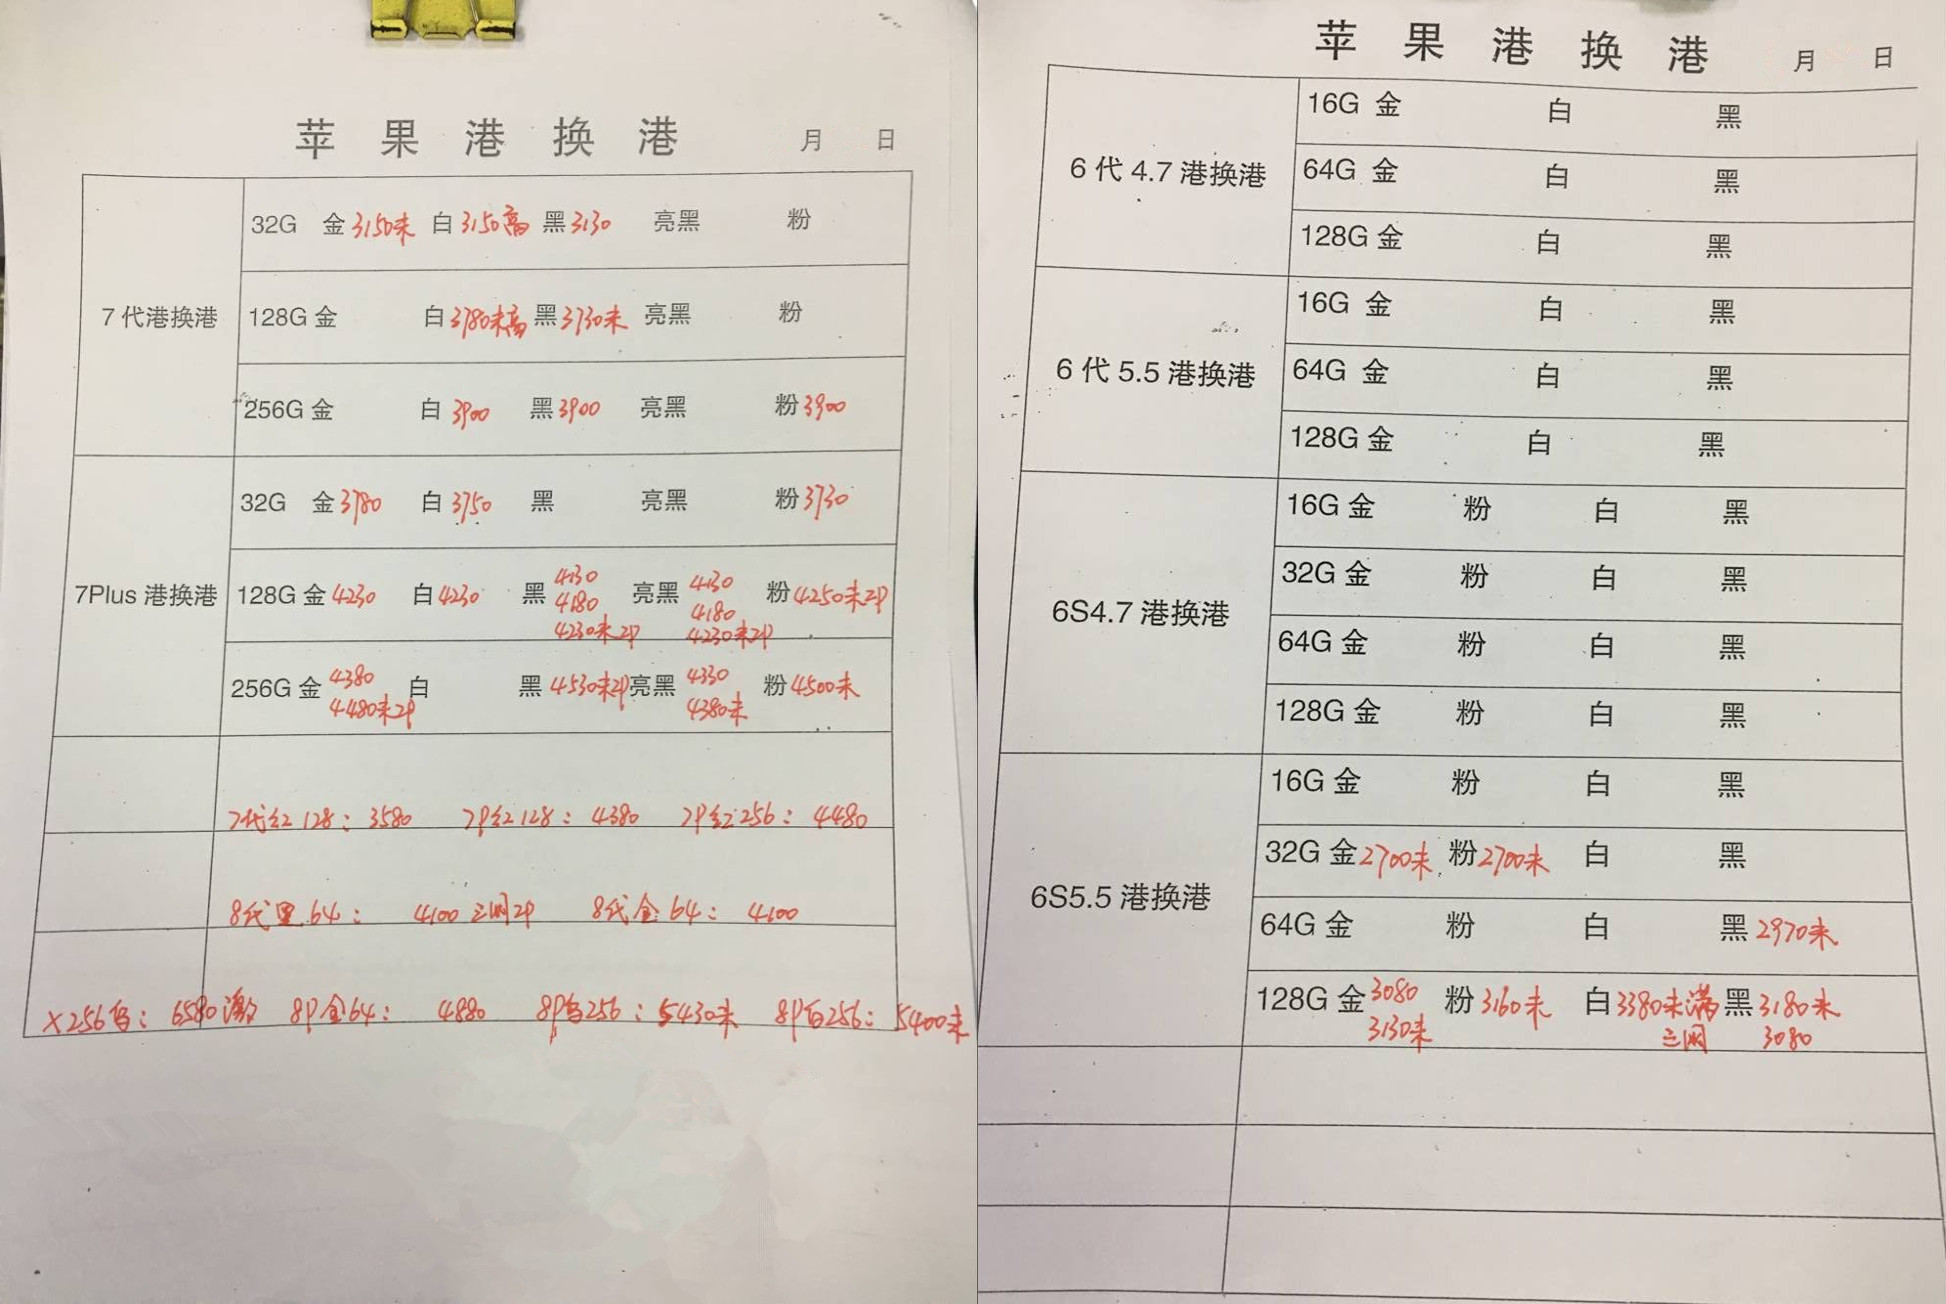 苹果港换港 月 日
7代港换港
32G 金3150未 白3150高 黑3130 亮黑 粉
128G 金 白3780未高 黑3730未 亮黑 粉
256G 金 白3900 黑3900 亮黑 粉3900
7Plus 港换港
32G 金3780 白3750 黑 亮黑 粉3730
128G 金4230 白4230 黑4130 4180 4230未2P 亮黑4130 4180 4230未2P 粉4250未2P
256G 金4380 4480未2P 白 黑4530未2P 亮黑4330 4380未 粉4500未
7代红128：3580 7P红128：4380 7P红256：4480
8代黑64：4100三网2P 8代金64：4100
X256白：6580激 8P金64：4880 8P白256：5430未 8P白256：5400未
苹果港换港 月 日
6代4.7港换港
16G 金 白 黑
64G 金 白 黑
128G 金 白 黑
6代5.5港换港
16G 金 白 黑
64G 金 白 黑
128G 金 白 黑
6S4.7港换港
16G 金 粉 白 黑
32G 金 粉 白 黑
64G 金 粉 白 黑
128G 金 粉 白 黑
6S5.5港换港
16G 金 粉 白 黑
32G 金2700未 粉2700未 白 黑
64G 金 粉 白 黑2970未
128G 金3080 3130未 粉3160未 白3380未满三网 黑3180未 3080